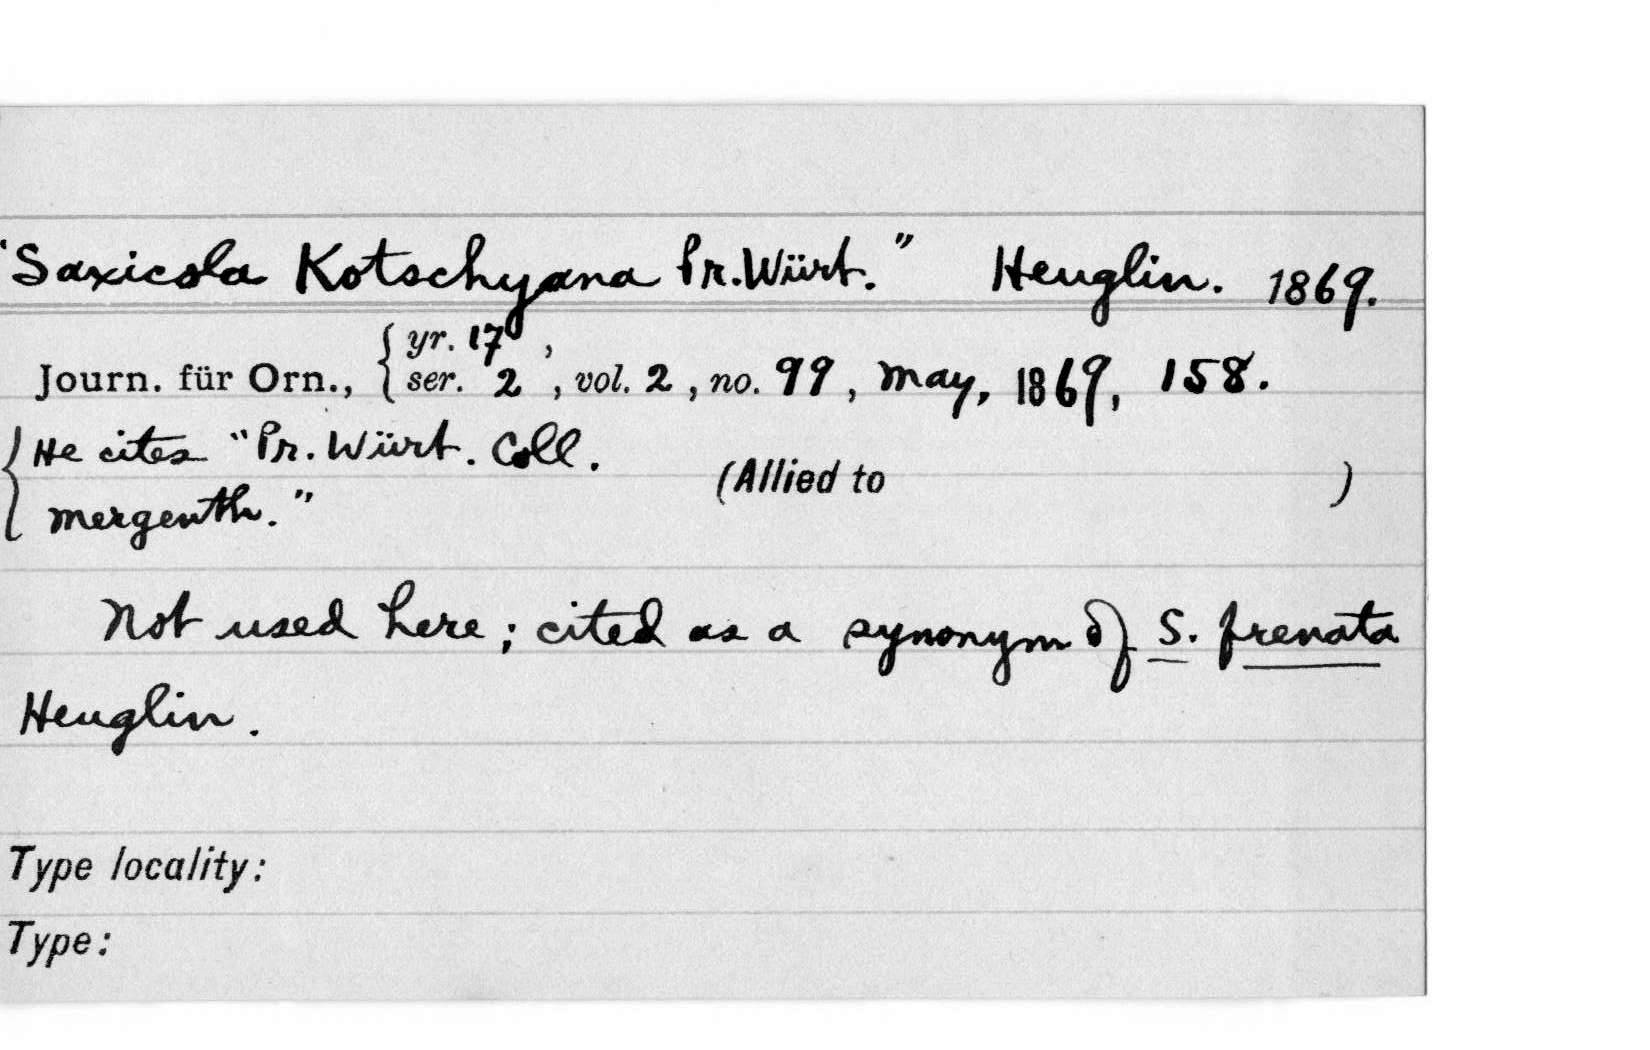 "Saxicola Kotschyana Pr. Würt." Heuglin. 1869.
yr. 17,
Journ. für Orn., ser. 2, vol. 2, no. 99, May, 1869, 158.
He cites "Pr. Würt. Coll.
(Allied to )
Mergenth."
Not used here; cited as a synonym of S. frenata
Heuglin.
Type locality:
Type: